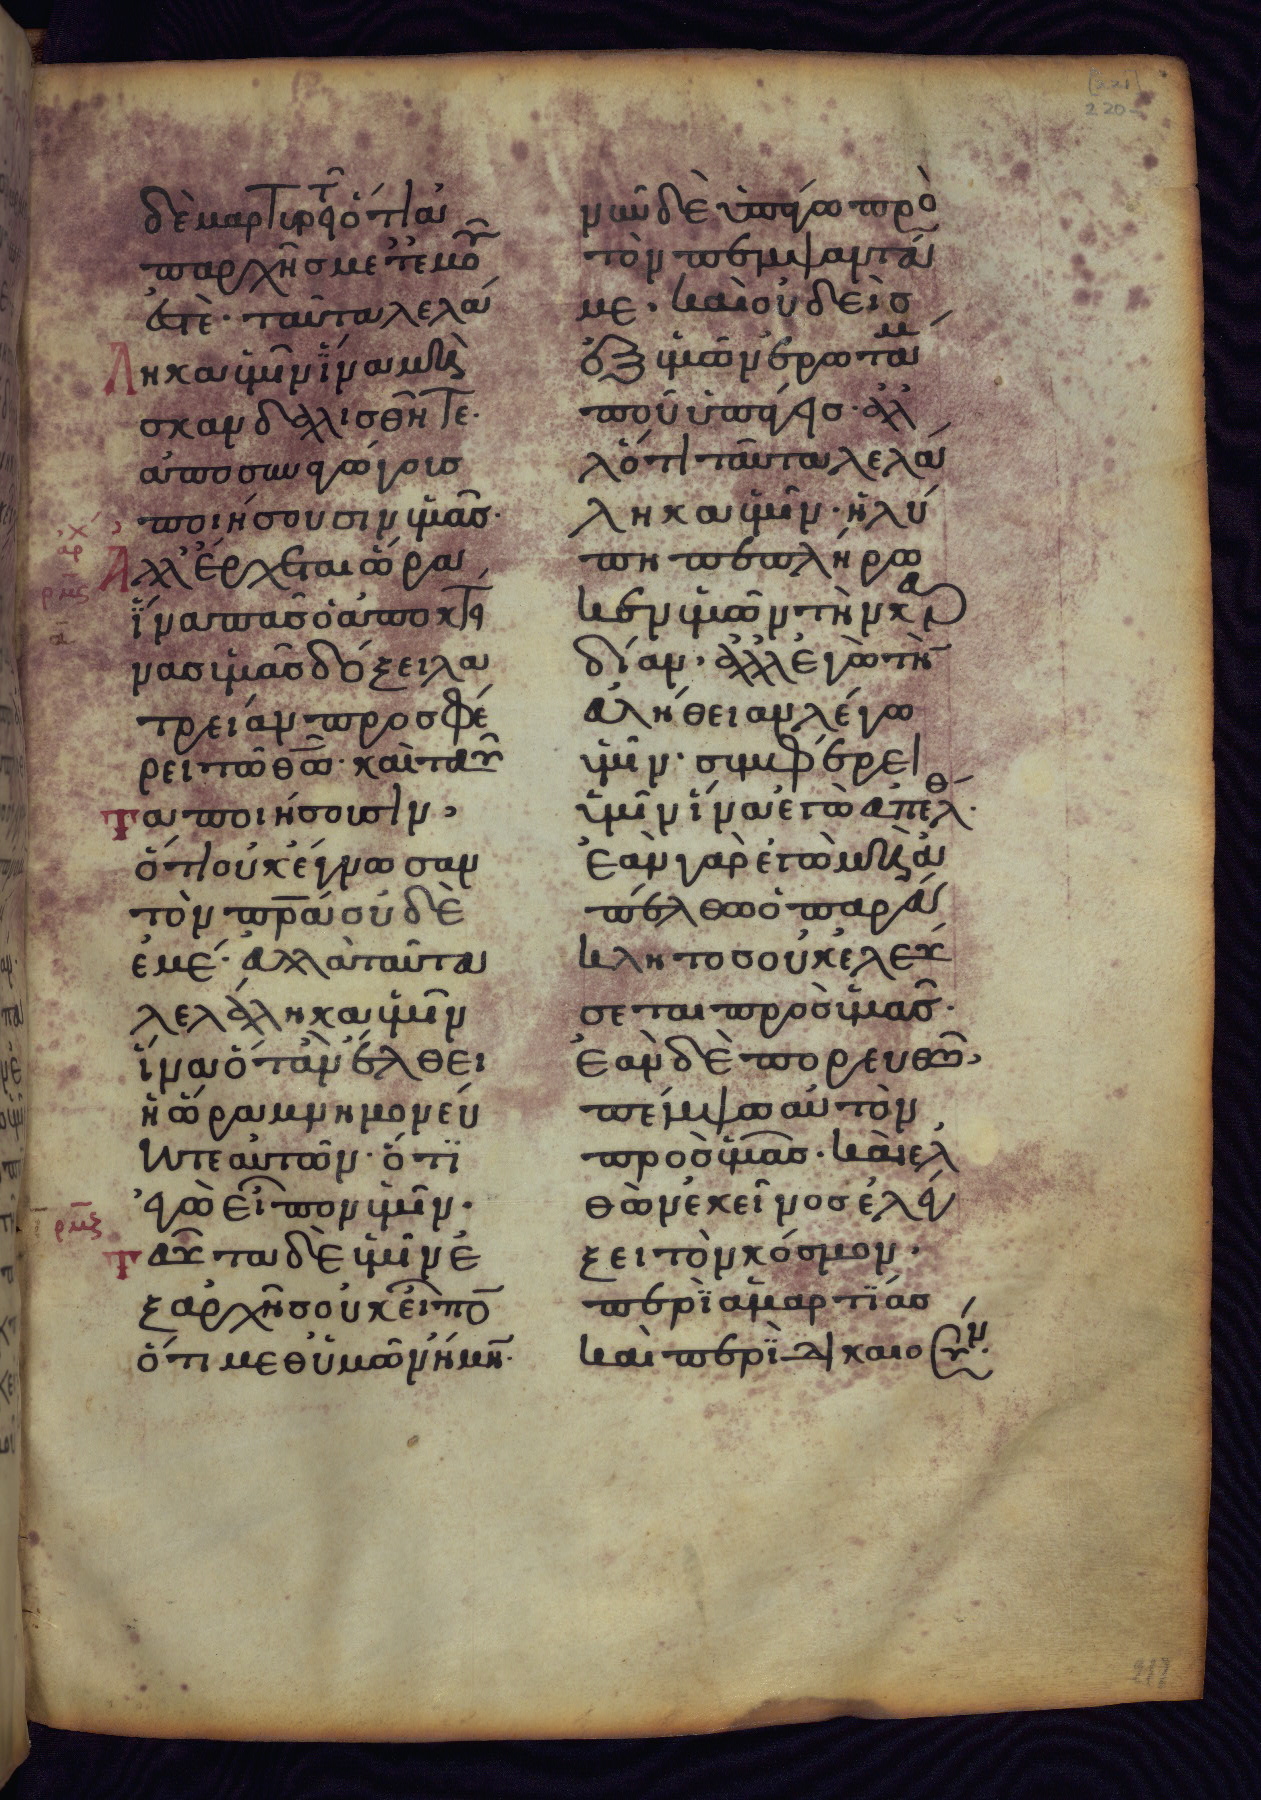 δὲ μαρτυρεῖτ ὅτι ἀ
παρχῆς μετεμοῦ
ἐστὲ· ταῦτα λελά
ληκα ὑμῖν ἵνα μὴ
σκανδαλισθῆτε·
ἀποσυναγώγοις
ποιήσουσιν ὑμᾶς·
Ἀλλ' ἔρχεται ὥρα
ἵνα πᾶς ὁ ἀποκτεί
νας ὑμᾶς δόξει λα
τρείαν προσφέ
ρει τῶ θῶ· καὶ ταῦ
τα ποιήσουσιν,
ὅτι οὐκ ἔγνωσαν
τὸν πρα οὐδὲ
ἐμέ· ἀλλὰ ταῦτα
λελάληκα ὑμῖν
ἵνα ὅταν ἔλθει
ἡ ὥρα μνημονεύ
ητε αὐτῶν· ὅτι
ἐγὼ εἶπον ὑμῖν·
Ταῦτα δὲ ὑμῖν ἐ
ξαρχῆς οὐκ εἶπο
ὅτι μεθ' ὑμῶν ἤμην·
νῦν δὲ ὑπάγω πρὸ
τὸν πέμψαντά
με· καὶ οὐδεὶς
ἐξ ὑμῶν ἐρωτᾶ μ
ποῦ ὑπάγεις· ἀλ
λ' ὅτι ταῦτα λελά
ληκα ὑμῖν· ἡ λύ
πη πεπλήρω
κεν ὑμῶν τὴν καρ
δίαν· ἀλλ' ἐγὼ τὴν
ἀλήθειαν λέγω
ὑμῖν· συμφέρει
ὑμῖν ἵνα ἐγὼ ἀπέλθ·
Ἐὰν γὰρ ἐγὼ μὴ ἀ
πέλθω ὁ παρά
κλητος οὐκ ἐλεύ
σεται πρὸς ὑμᾶς·
Ἐὰν δὲ πορευθῶ,
πέμψω αὐτὸν
πρὸς ὑμᾶς· καὶ ἐλ
θὼν ἐκεῖνος ἐλέγ
ξει τὸν κόσμον·
περὶ ἁμαρτίας
καὶ περὶ δικαιοσύν·